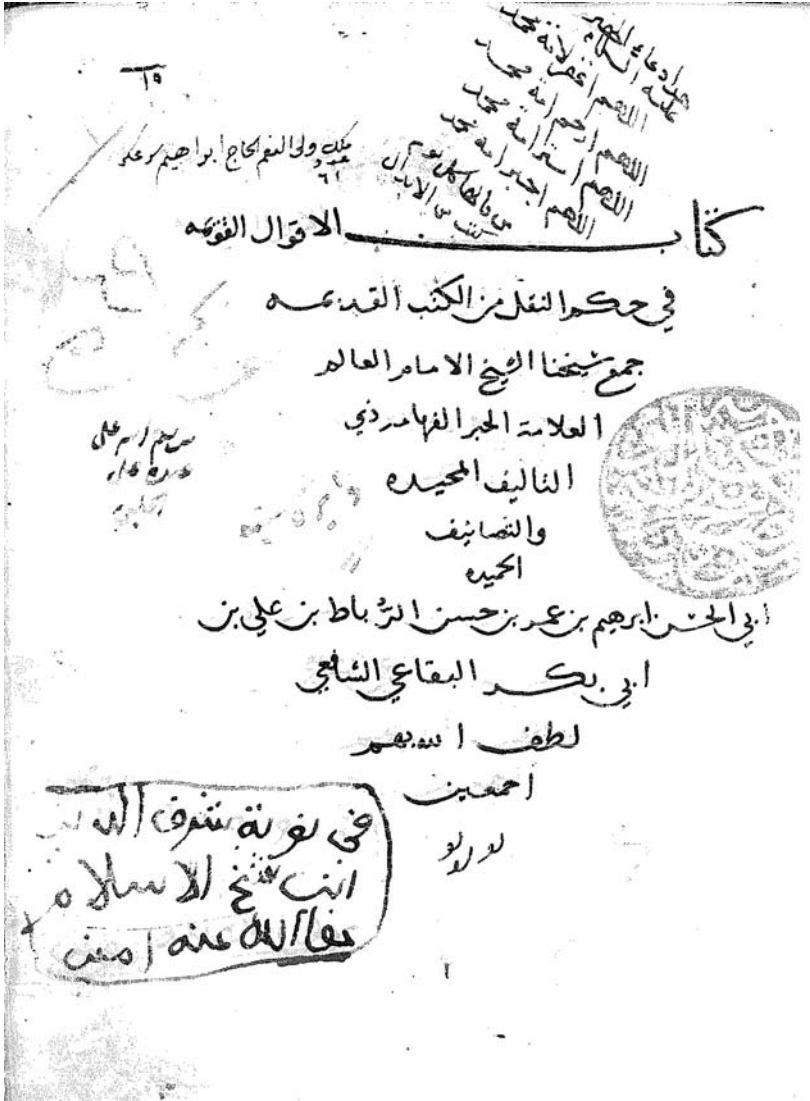 ١٥
هذا دعاء الخضر
عليه السلام
اللهم اغفر لامة محمد
اللهم ارحم امة محمد
اللهم استر امة محمد
اللهم اجبر امة محمد
من قالها كل يوم
كتب من الابدال
ملك ولي النعم الحاج ابراهيم سرعسكر
٦١
كتاب الاقوال القويمه
في حكم النقل من الكتب القديمه
جمع شيخنا الشيخ الامام العالم
العلامة الحبر الفهامه ذي
التاليف المجيده
والتصانيف
الحميده
ابي الحسن ابرهيم بن عمر بن حسن الرُّباط بن علي بن
ابي بكر البقاعي الشافعي
لطف الله بهم
اجمعين
في نوبة شرف الدين
ابن شيخ الاسلام
عفا الله عنه امين
١